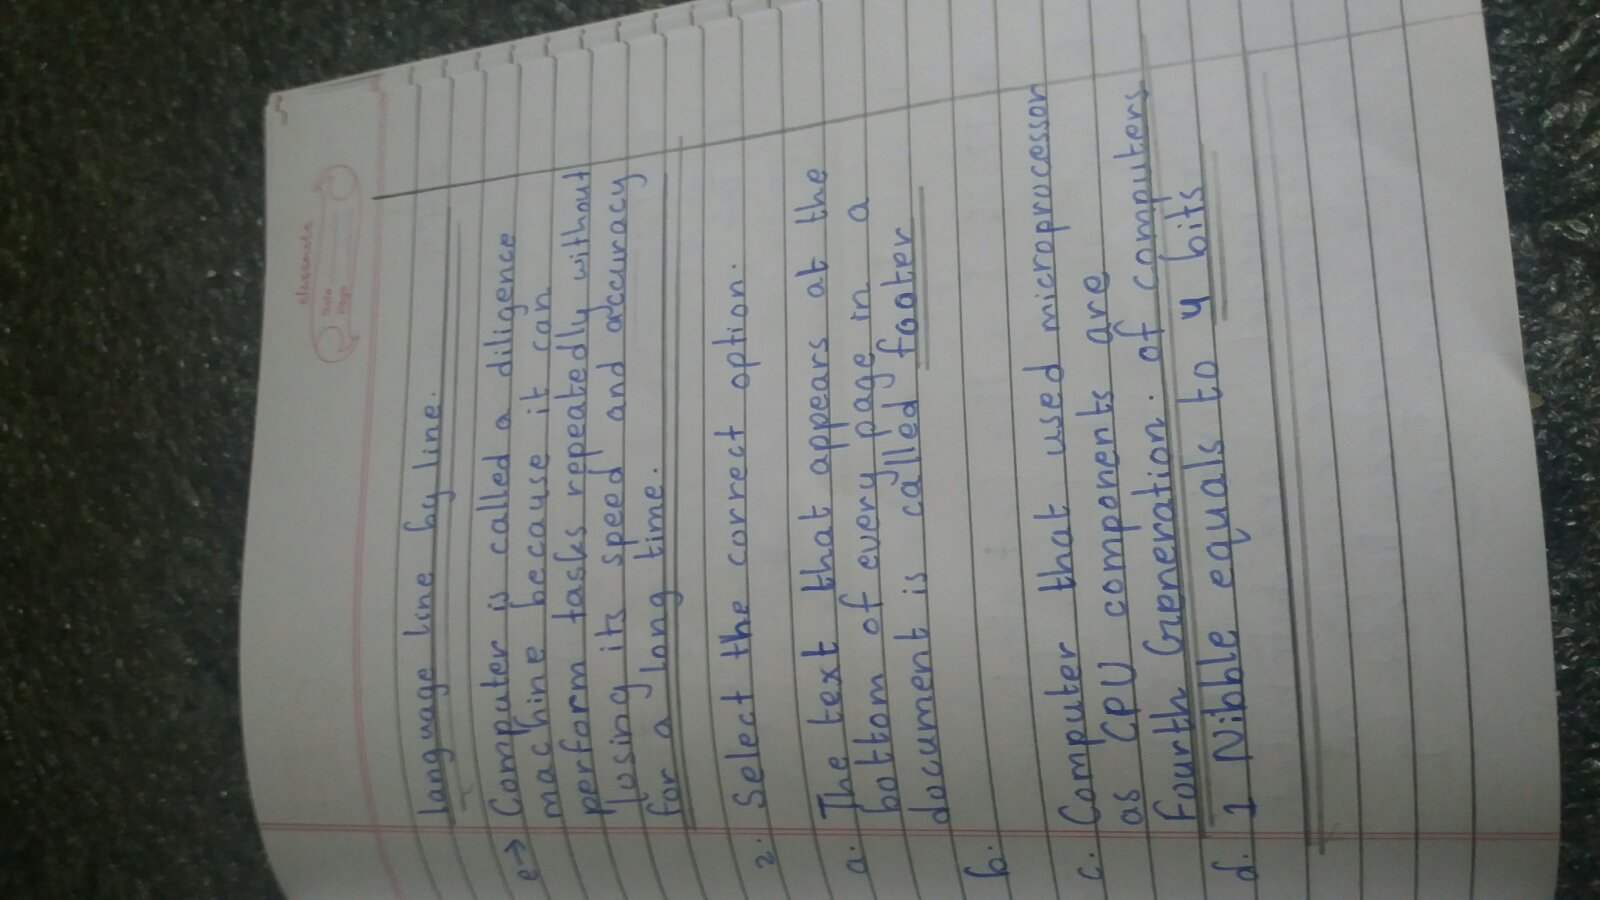 classmate
Date
Page
language line by line.
e→ Computer is called a diligence
machine because it can
perform tasks repeatedly without
lusing its speed and accuracy
for a long time.
2. Select the correct option.
a. The text that appears at the
bottom of every page in a
document is called footer
b.
c. Computer that used microprocessor
as CPU components are
Fourth Generation. of computers
d. 1 Nibble equals to 4 bits